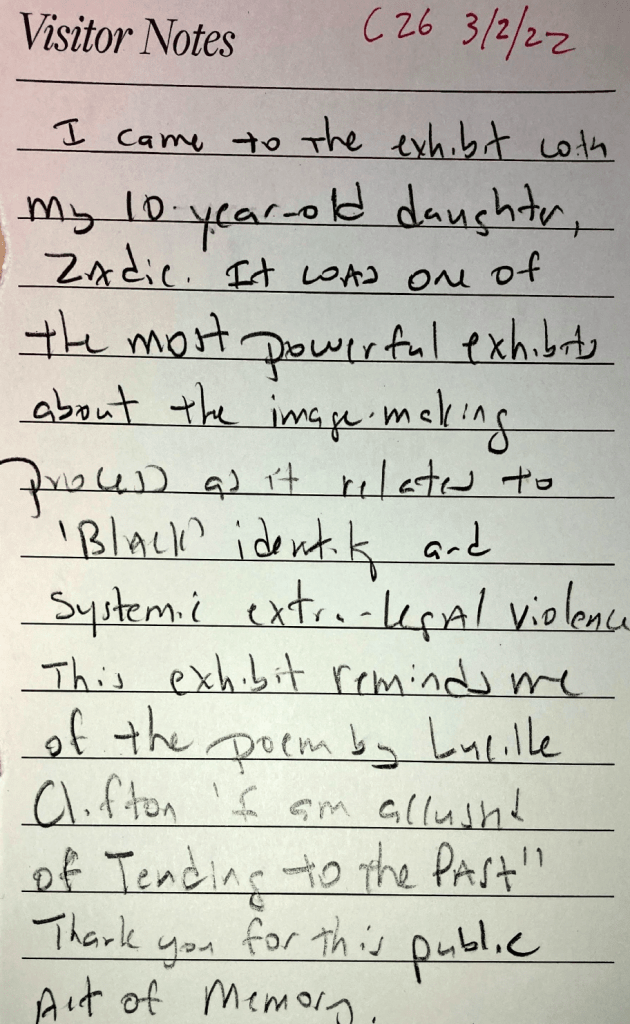 Visitor Notes
C26 3/2/22
I came to the exhibit with
my 10-year-old daughter,
Zadie. It was one of
the most powerful exhibits
about the image-making
process as it relates to
'Black' identity and
systemic extra-legal violence
This exhibit reminds me
of the poem by Lucille
Clifton "I am accused
of Tending to the Past"
Thank you for this public
Act of Memory.